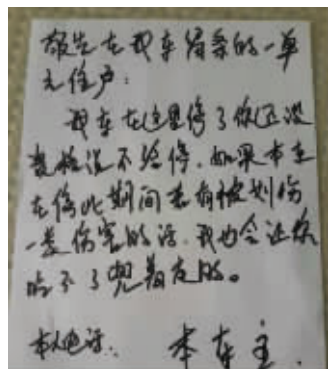 敬告在我车留条的一单
元住户：
我车在这里停了你还没
资格说不给停.如果本车
在停此期间若有被划伤
一类伤害的话.我也会让你
吃不了兜着走的。
本人电话：本车主